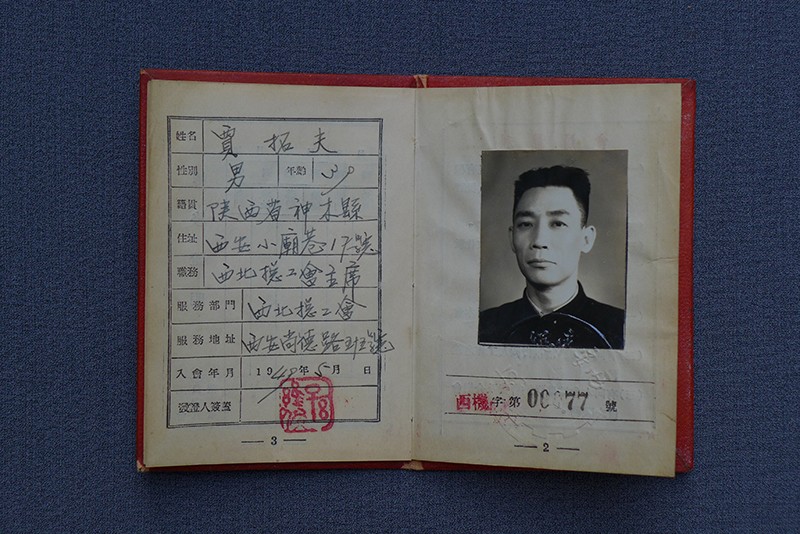 姓名 賈拓夫
性別 男 年齡 39
籍貫 陝西省神木縣
住址 西安小廟巷17號
職務 西北總工會主席
服務部門 西北總工會
服務地址 西安尚德路 號
入會年月 1949年5月 日
發證人簽蓋
— 3 —
西機字第 00077 號
— 2 —